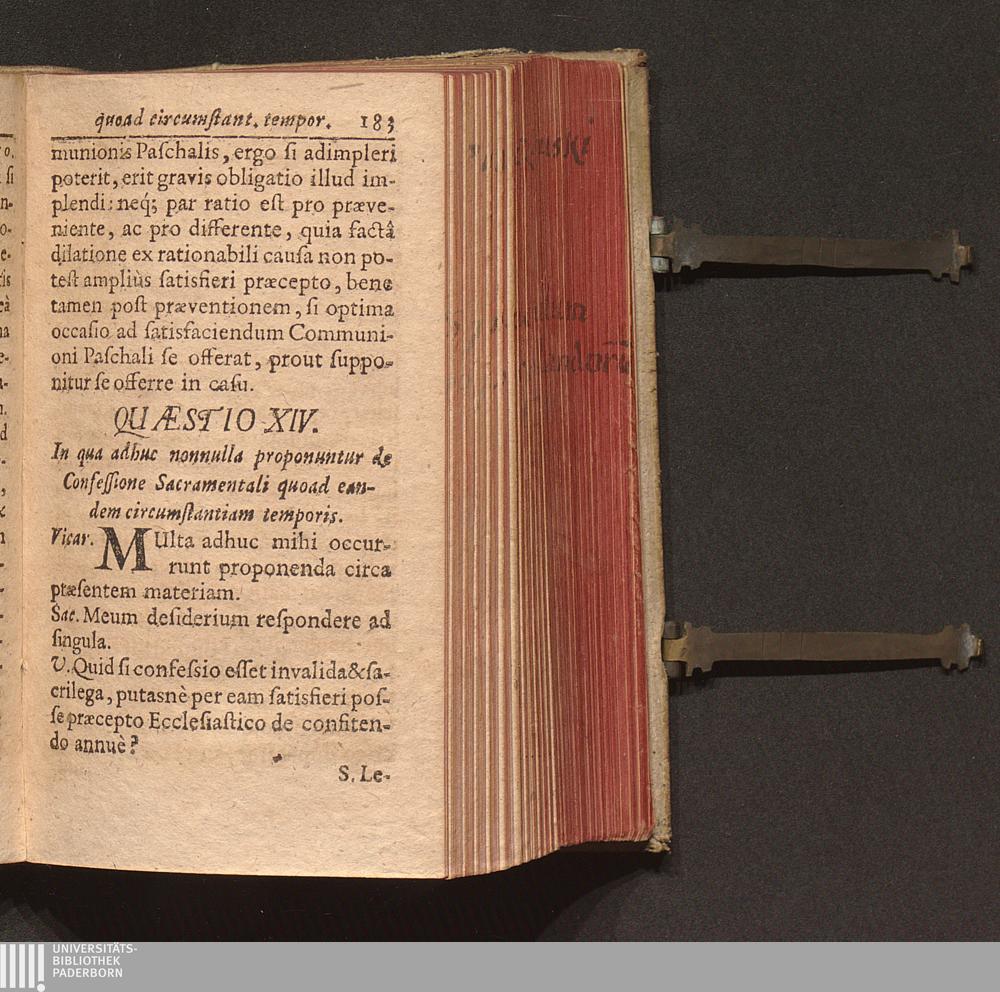 quoad circumſtant. tempor. 183
munionis Paſchalis, ergo ſi adimpleri
poterit, erit gravis obligatio illud im-
plendi: neq́; par ratio eſt pro præve-
niente, ac pro differente, quia factâ
dilatione ex rationabili cauſa non po-
teſt ampliùs ſatisfieri præcepto, bene
tamen poſt præventionem, ſi optima
occaſio ad ſatisfaciendum Communi-
oni Paſchali ſe offerat, prout ſuppo-
nitur ſe offerre in caſu.
QUÆSTIO XIV.
In qua adhuc nonnulla proponuntur de
Confeſſione Sacramentali quoad ean-
dem circumſtantiam temporis.
Vicar. MUlta adhuc mihi occur-
runt proponenda circa
præſentem materiam.
Sac. Meum deſiderium reſpondere ad
ſingula.
V. Quid ſi confeſsio eſſet invalida & ſa-
crilega, putasnè per eam ſatisfieri poſ-
ſe præcepto Eccleſiaſtico de confiten-
do annuè?
S. Le-
UNIVERSITÄTS-
BIBLIOTHEK
PADERBORN